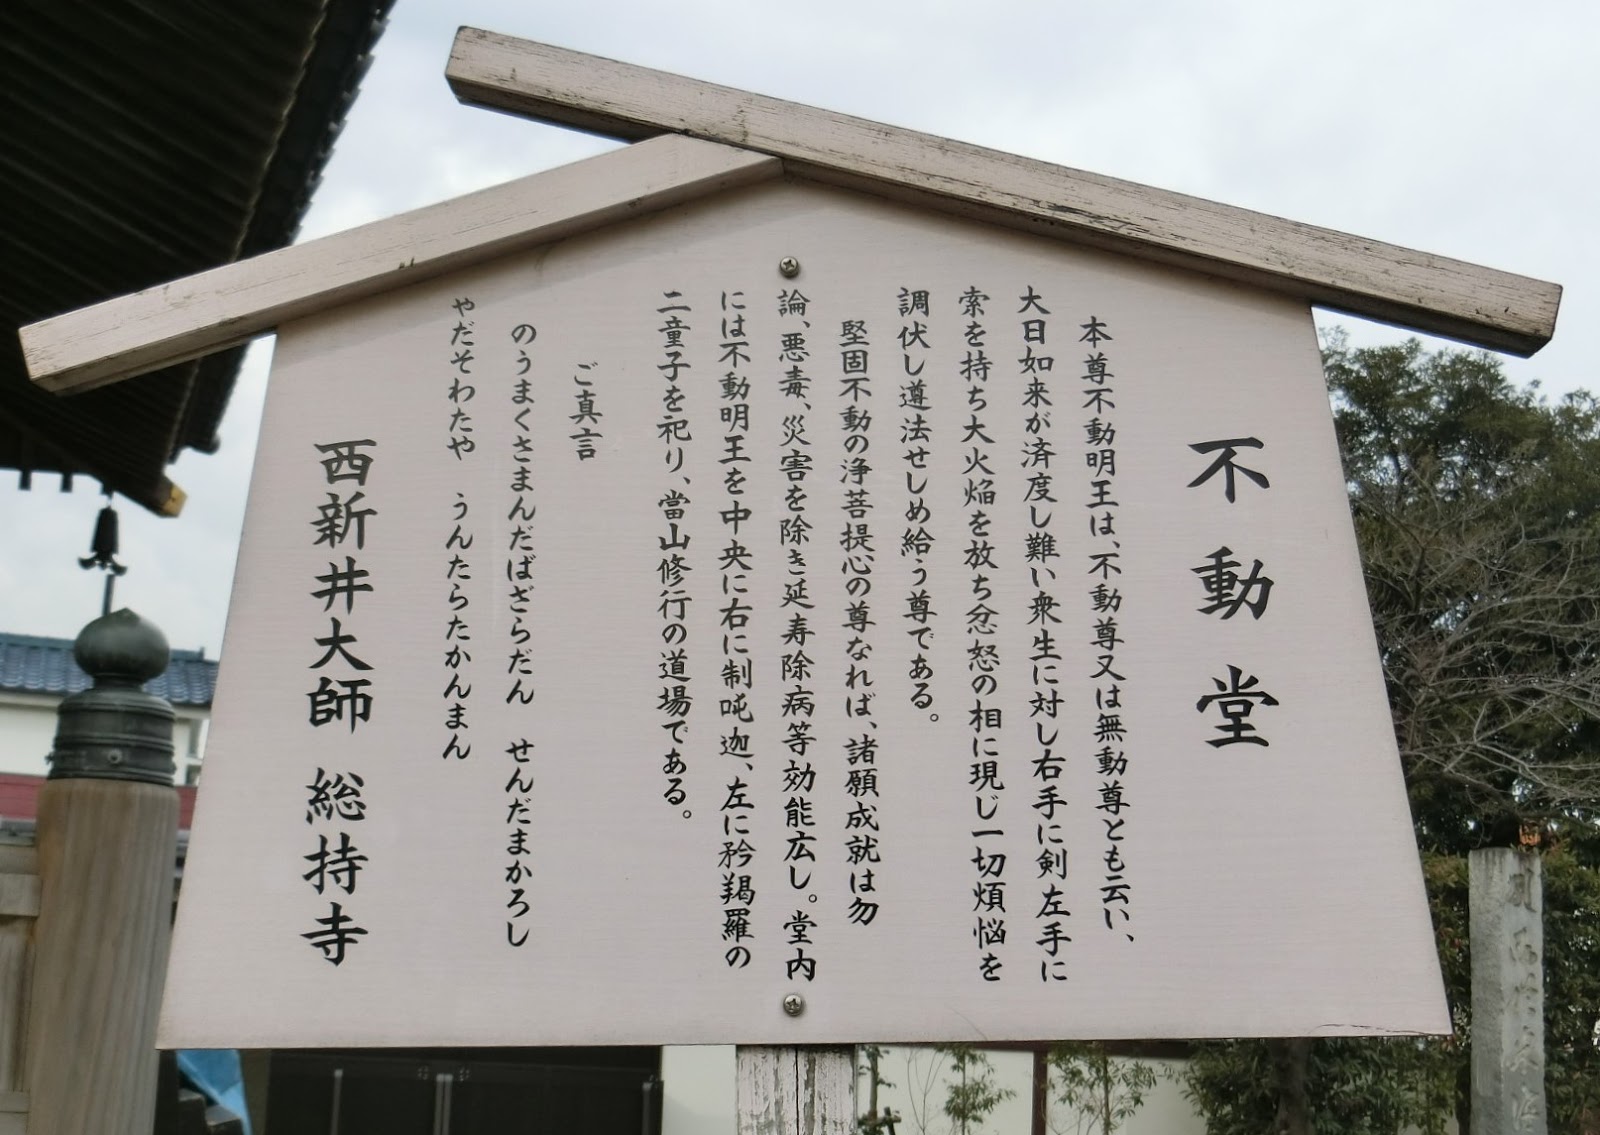 不動堂
本尊不動明王は、不動尊又は無動尊とも云い、
大日如来が済度し難い衆生に対し右手に剣左手に
索を持ち大火焔を放ち忿怒の相に現じ一切煩悩を
調伏し遵法せしめ給う尊である。
堅固不動の浄菩提心の尊なれば、諸願成就は勿
論、悪毒、災害を除き延寿除病等効能広し。堂内
には不動明王を中央に右に制吒迦、左に矜羯羅の
二童子を祀り、當山修行の道場である。
ご真言
のうまくさまんだばざらだん せんだまかろし
やだそわたや うんたらたかんまん
西新井大師 総持寺